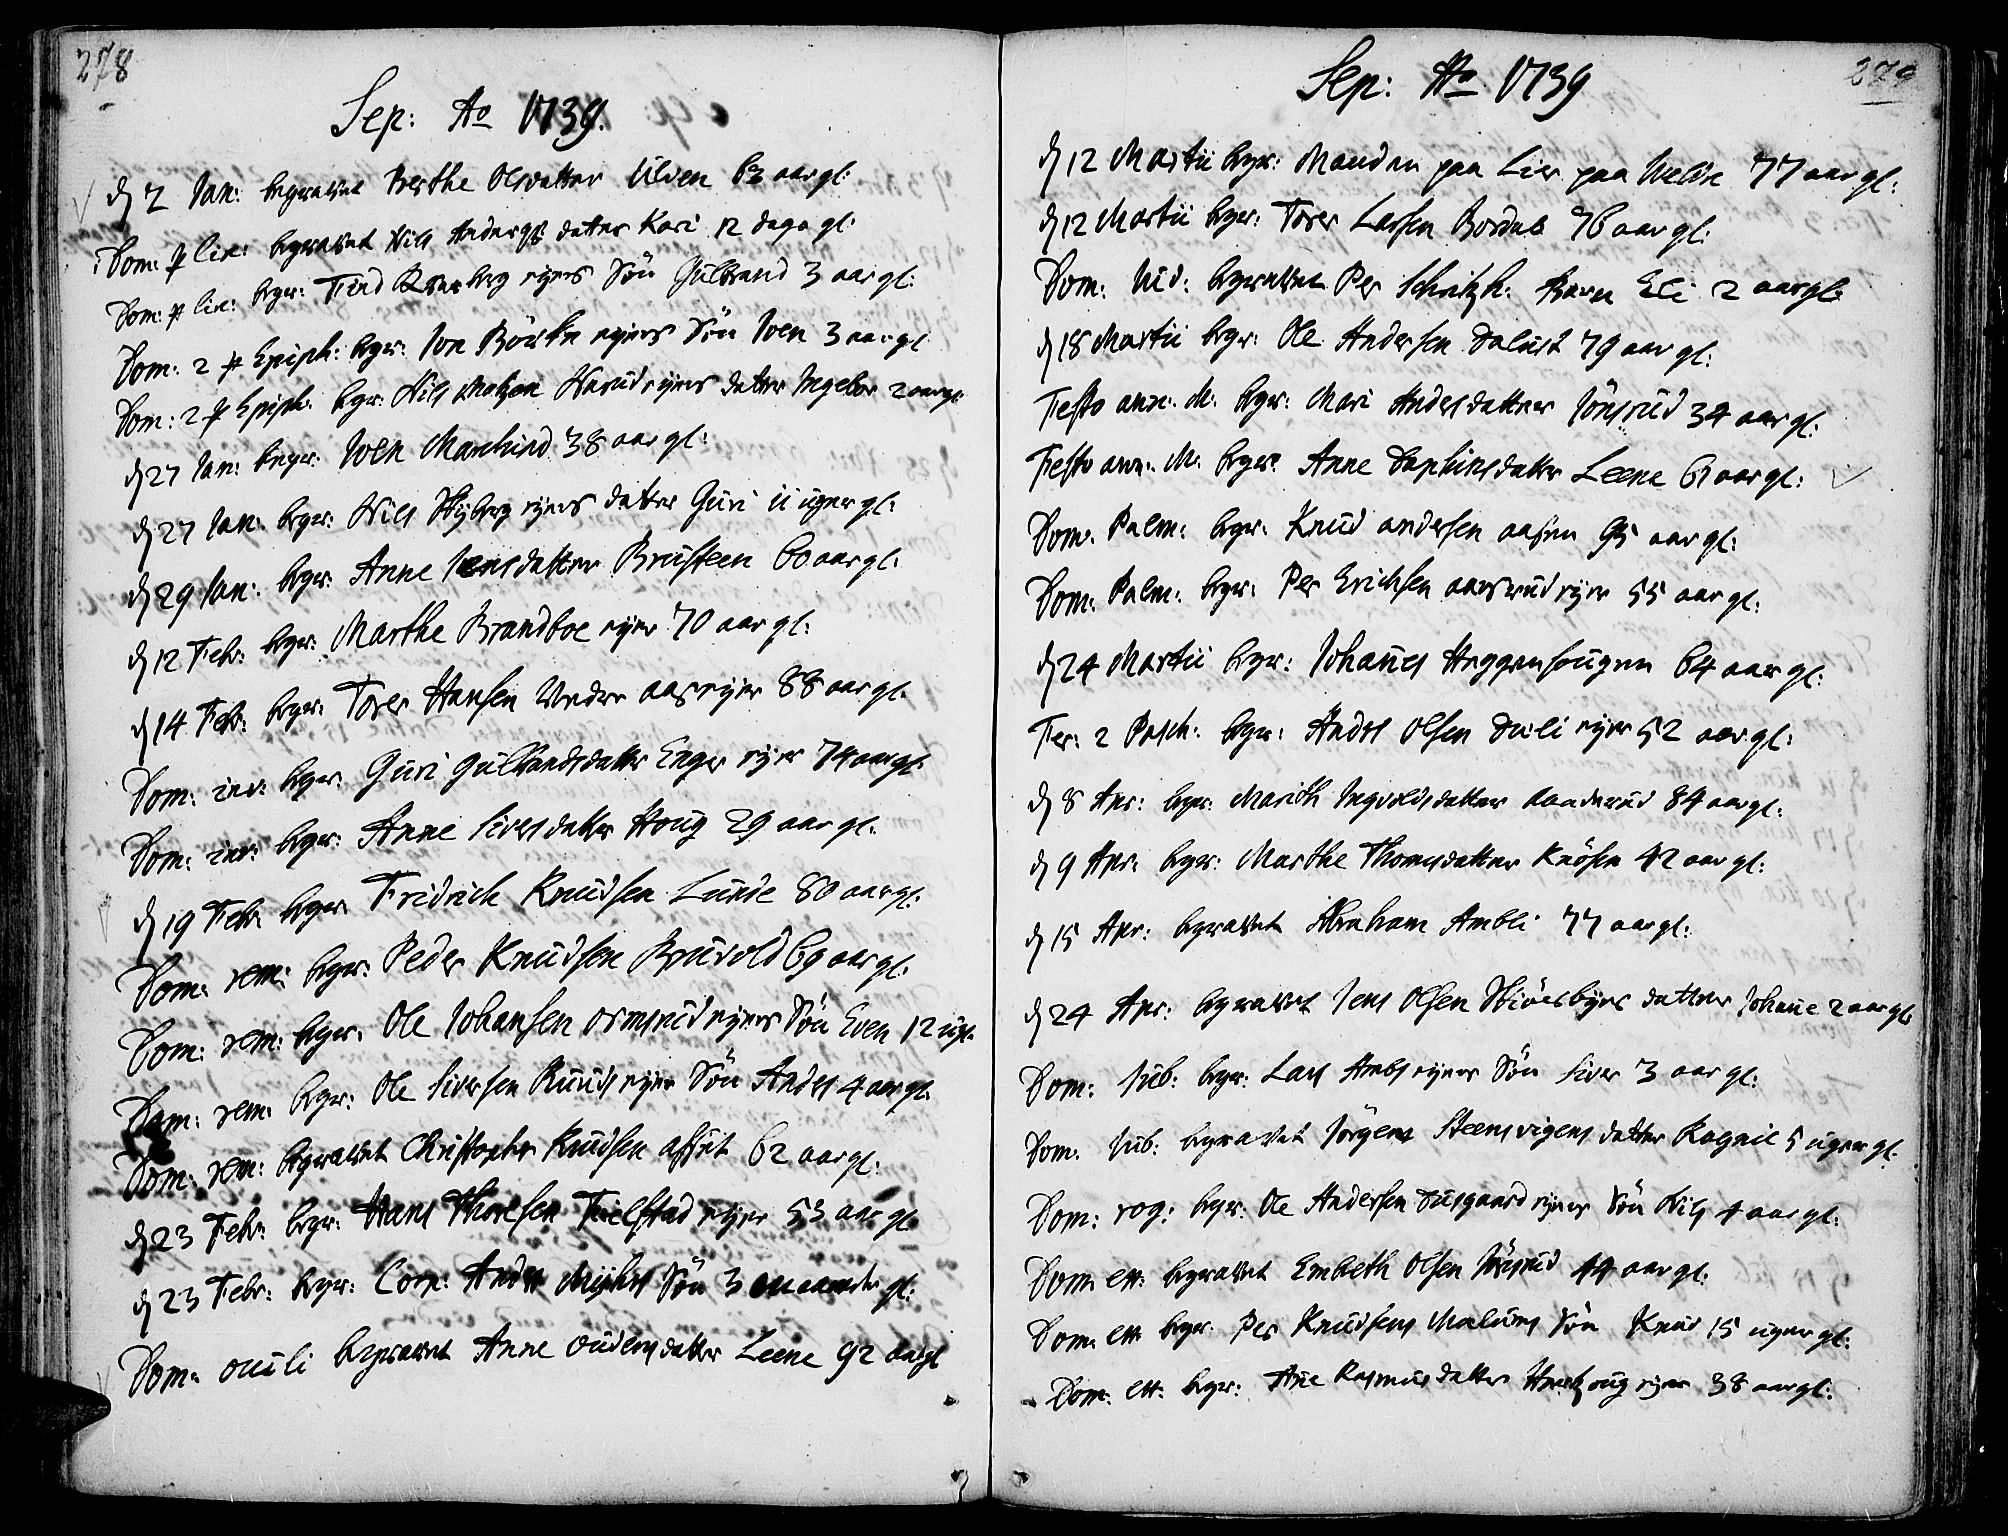 278
Sep: Ao 1739.
d 2 Jan: begravet Berthe Olsdatter Ulven 63 aar gl:
Dom: p lix: begravet Nils datter Kari 12 dage gl:
Dom: p lix: begr: Find eyers Sön Gulbrand 3 aar gl:
Dom: 2 p Epiph: begr: Jon Börke eyers Sön Joen 3 aar gl
Dom: 2 p Epiph: begr: Nils eyers datter Ingebor 2 aar gl:
d 27 Jan: begr: Joen 38 aar gl:
d 27 Jan: begr: Nils eyers datter Guri 11 uger gl:
d 29 Jan: begr: Anne Jensdatter Brusteen 60 aar gl:
d 12 Febr: begr: Marthe Brandboe eyer 70 aar gl:
d 14 Febr: begr: Torer Hansen aas eyer 88 aar gl:
Dom: inv: begr: Guri Gulbrandsdatter Enger eyer 74 aar gl:
Dom: inv: begr: Anne Siversdatter Houg 29 aar gl:
d 19 Febr begr Fridrich Knudsen Lunde 80 aar gl:
Dom: rem: begr: Peder Knudsen Bruvold 69 aar gl:
Dom: rem: begr: Ole Johansen Ormsrud eyers Sön Even 12 ug:
Dom: rem: begr: Ole Siversen Ruuds eyer Sön Anders 4 aar gl:
Dom: rem: begravet Christopher Knudsen 62 aar gl:
d 23 Febr: begr: Hans Thoresen Fielstad eyer 53 aar gl
d 23 Febr: begr: Corp: Anders Sön 3 maaneder gl:
Dom: oculi begravet Anne Oudensdatter Leene 92 aar gl
279
Sep: Ao 1739
d 12 Martii begr: Manden paa Lier paa 77 aar gl:
d 12 Martii begr: Torer Larsen 76 aar gl:
Dom: begravet Per Barn Eli 2 aar gl:
d 18 Martii begr: Ole Andersen 79 aar gl:
Festo ann: M: begr: Mari Andersdatter Jönsrud 34 aar gl:
Festo ann: M: begr: Anne datter Leene 61 aar gl:
Dom: Palm: begr: Knud andersen aasen 95 aar gl:
Dom: Palm: begr: Per Erichsen eyer 55 aar gl:
d 24 Martii begr: Johannes Heggenhougen 64 aar gl:
Fer: 2 Pasch: begr: Anders Olsen Duli eyer 52 aar gl:
d 8 Apr: begr: Marith Ingvoldsdatter 84 aar gl:
d 9 Apr: begr: Marthe Thomesdatter Knösen 42 aar gl:
d 15 Apr: begravet Abraham Ambli 77 aar gl:
d 24 Apr: begravet Jens Olsen datter Johanne 2 aar gl:
Dom: jub: begr: Lars eyers Sön Siver 3 aar gl:
Dom: jub: begravet Jörgens Steensvigens datter Ragnil 5 uger gl:
Dom: rog: begr: Ole Andersen eyers Sön Nils 4 aar gl:
Dom: begravet Embreth Olsen 44 aar gl:
Dom: begr: Per Knudsens Sön Knud 15 uger gl:
Dom: begr: Ane Rasmusdatter eyer 38 aar gl: